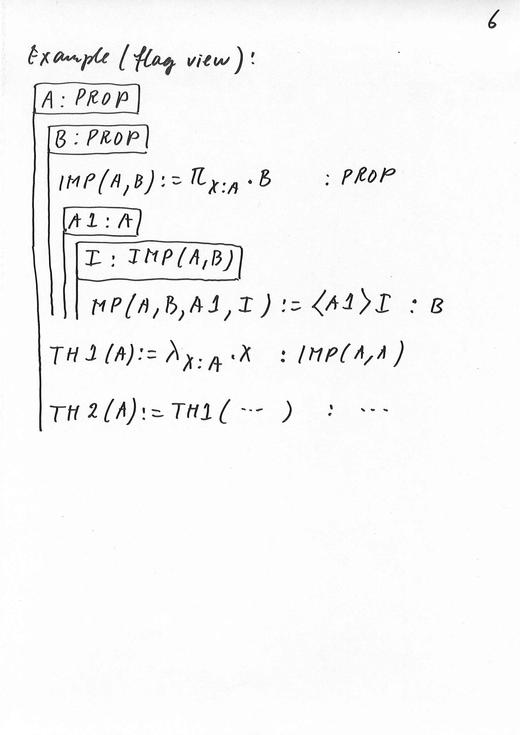 6
Example (flag view):
A : PROP
B : PROP
IMP(A,B) := Π_{X:A} . B : PROP
A1 : A
I : IMP(A,B)
MP(A,B,A1,I) := ⟨A1⟩I : B
TH1(A) := λ_{X:A} . X : IMP(A,A)
TH2(A) := TH1( ... ) : ...